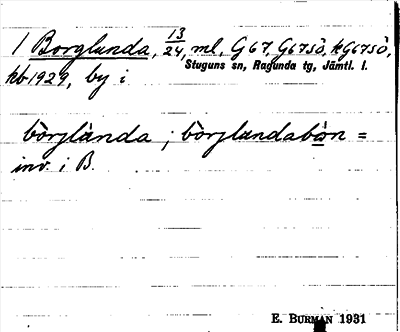 1 Borglunda, 13/24, ml, G67, G67sö, kG67sö,
Stuguns sn, Ragunda tg, Jämtl. l.
kb 1929, by i
bòrglànda ; bòrglandabòn =
inv. i B.
E. BURMAN 1931